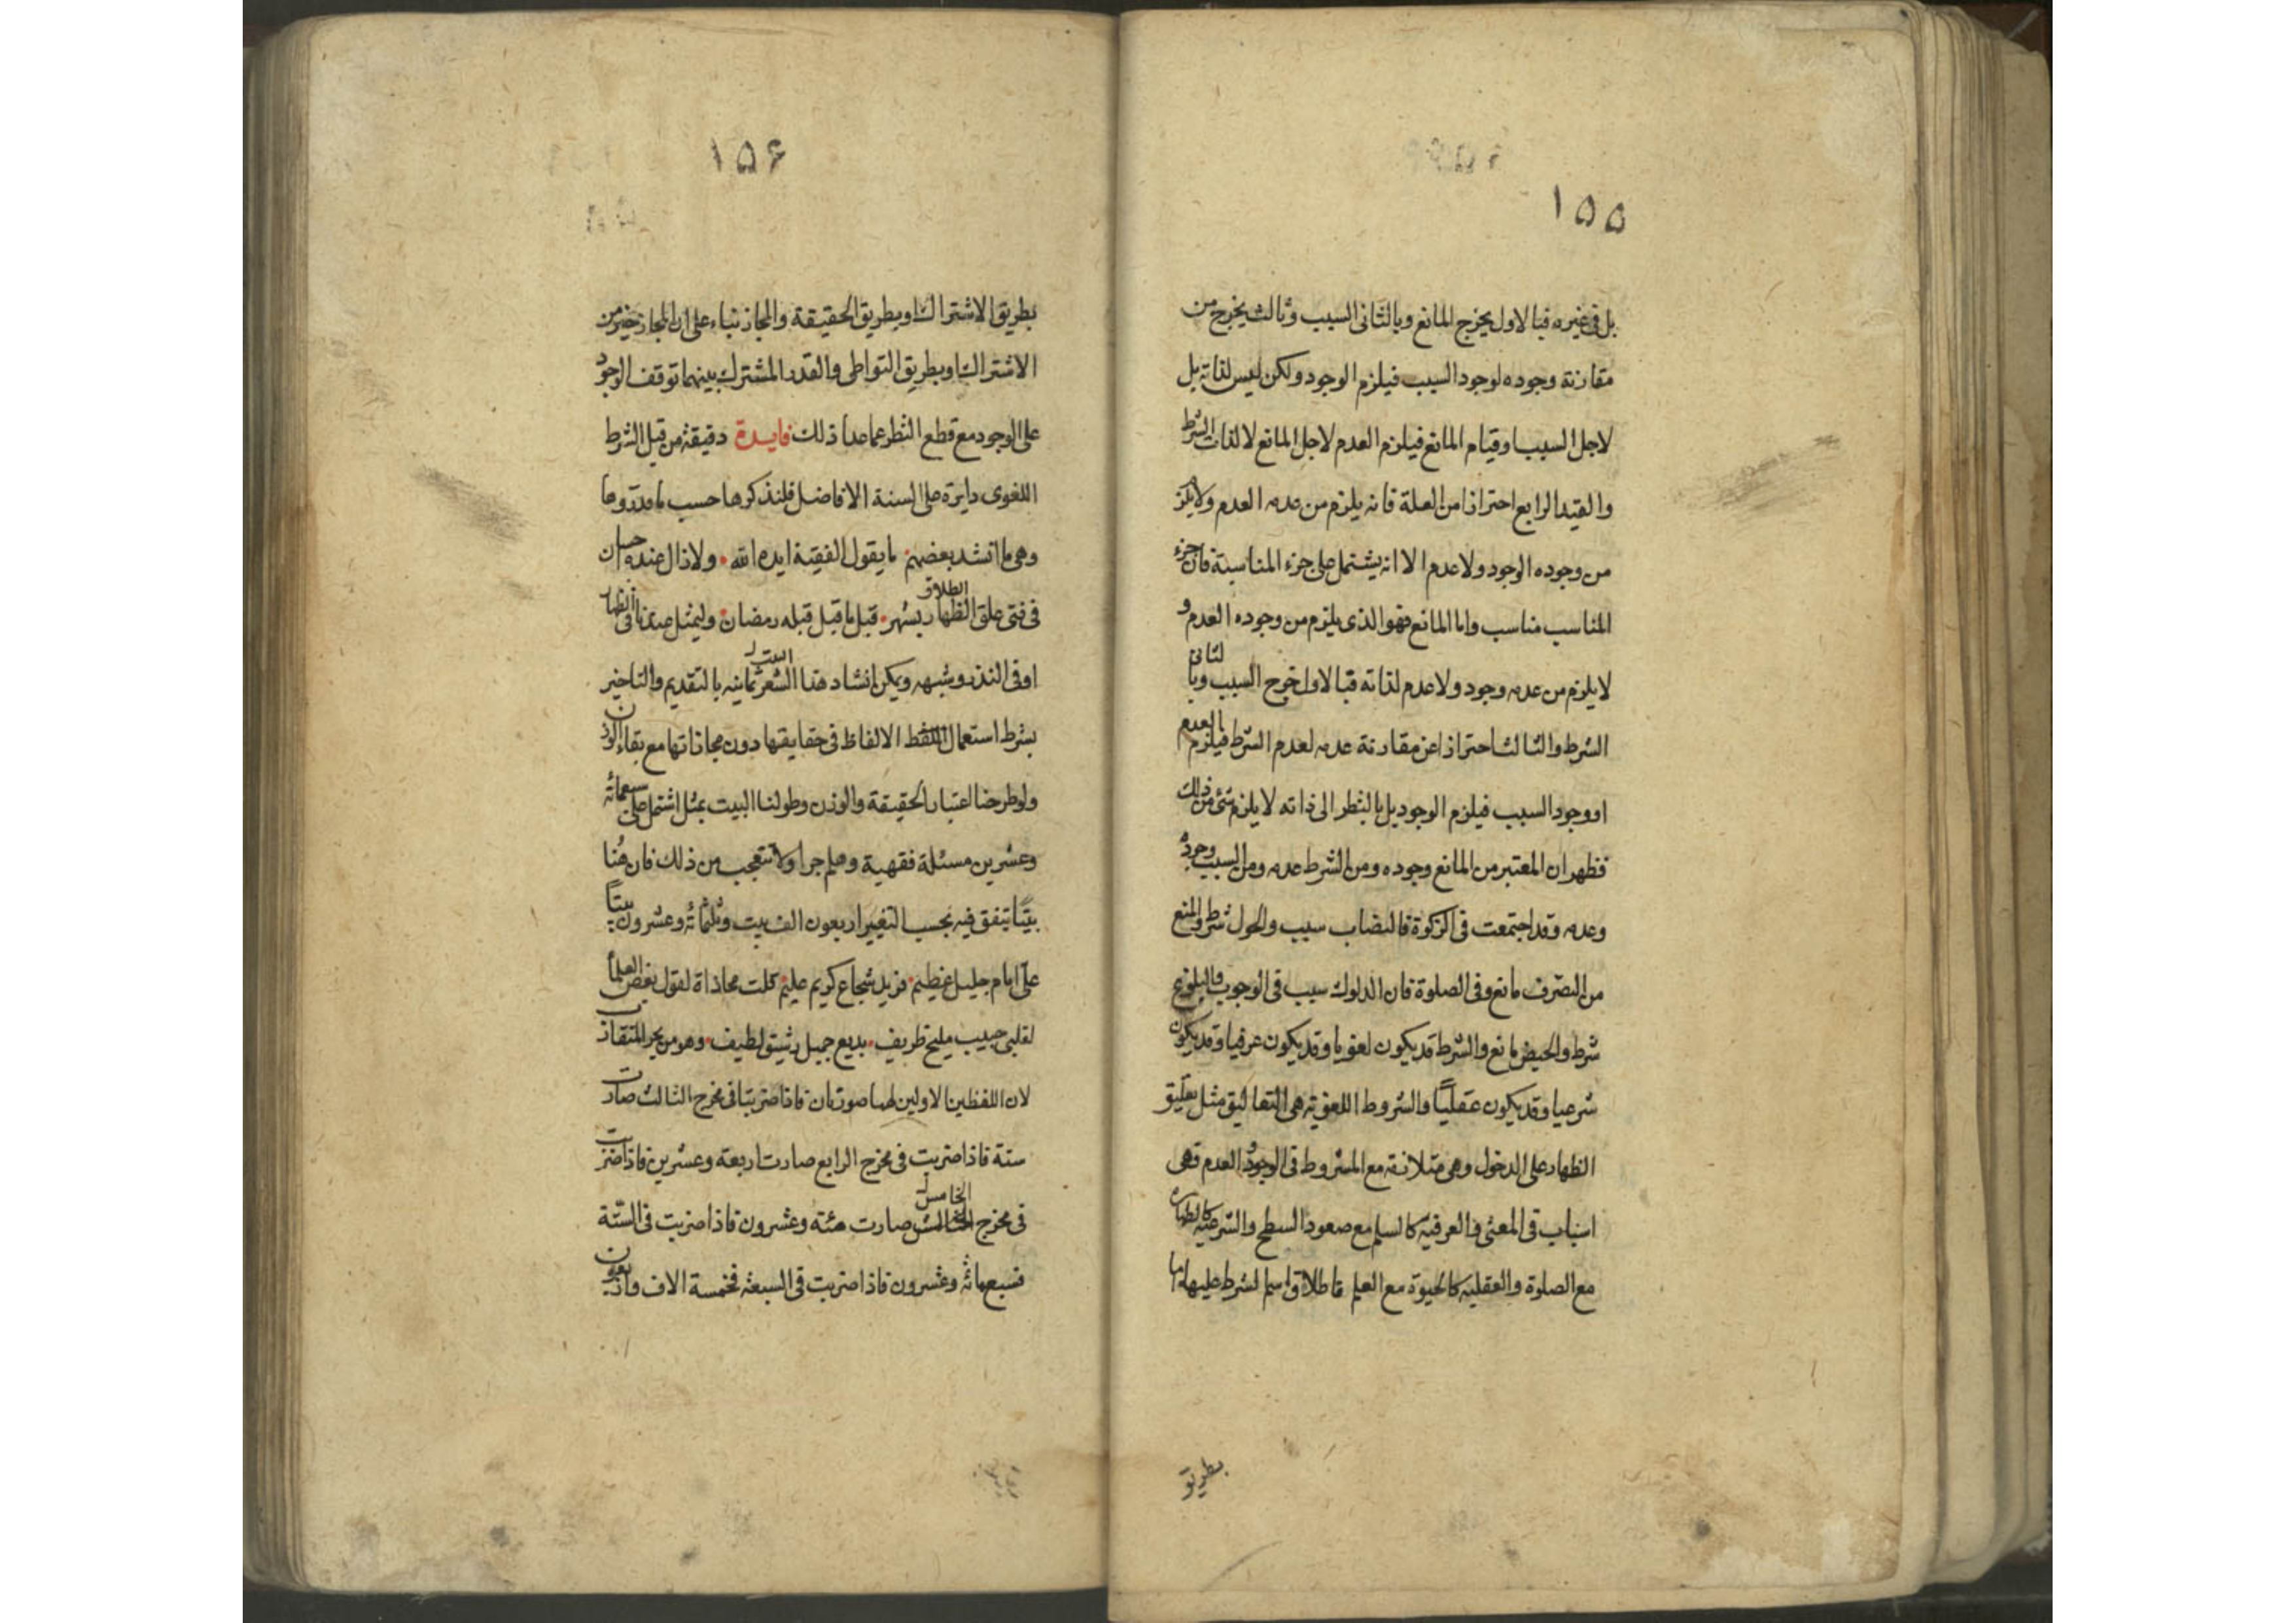 ١٥٥
بل فى غيره فبالاول يخرج المانع وبالثانى السبب وثالث يخرج من
مقارنة وجوده لوجود السبب فيلزم الوجود ولكن ليس لذاته بل
لاجل السبب او قيام المانع فيلزم العدم لاجل المانع لا لذات الشرط
والقيد الرابع احترازا من العلة فانه يلزم من عدمه العدم ولا يلزم
من وجوده الوجود ولا عدم الا انه يشتمل على جزء المناسبة فان جزء
المناسب مناسب واما المانع فهو الذى يلزم من وجوده العدم و
لا يلزم من عدمه وجود ولا عدم لذاته فبالاول خرج السبب وبالثانى
الشرط والثالث احترازا عن مقارنة عدمه لعدم الشرط فيلزم العدم
او وجود السبب فيلزم الوجود بل بالنظر الى ذاته لا يلزم شئ من ذلك
فظهر ان المعتبر من المانع وجوده ومن الشرط عدمه ومن السبب وجوده
وعدمه وقد اجتمعت فى الزكوة فالنصاب سبب والحول شرط والمنع
من التصرف مانع وفى الصلوة فان الدلوك سبب فى الوجوب والبلوغ
شرط والحيض مانع والشرط قد يكون لغويا وقد يكون عرفيا وقد يكون
شرعيا وقد يكون عقليًا والشروط اللغوية هى التعاليق مثل تعليق
الظهار على الدخول وهى متلازمة مع المشروط فى الوجود والعدم فهى
اسباب فى المعنى والعرفية كالسلم مع صعود السطح والشرعية كالطهارة
مع الصلوة والعقلية كالحيوة مع العلم فاطلاق اسم الشرط عليها اما
بطريق
١٥۶
بطريق الاشتراك او بطريق الحقيقة والمجاز بناء على ان المجاز خير من
الاشتراك او بطريق التواطى والقدر المشترك بينهما توقف الوجود
على الوجود مع قطع النظر عما عدا ذلك فايدة دقيقة من قبل الشرط
اللغوى دايرة على السنة الافاضل فلنذكرها حسب ما
وهى ما انشد بعضهم ما يقول الفقيه ايده الله ولا زال عنده احسان
فى فتى علق الظهار الطلاق بشهر قبل ما قبل قبله رمضان وليمثل عندنا فى الظهار
او فى النذر وشبهه ويمكن انشاد هذا الشعر البيت ثمانية بالتقديم والتاخير
بشرط استعمال الالفاظ فى حقايقها دون مجازاتها مع بقاء الوزن
ولو طرحنا اعتبار الحقيقة والوزن وطولنا البيت بمثل اشتمل على سبعمائة
وعشرين مسئلة فقهية وهلم جرا ولا تتعجب من ذلك فان هُنا
بيتًا يتفق فيه بحسب التغيير اربعون الف بيت وثلثمائة وعشرون بيتًا
علىّ امام جليل عظيم فريد شجاع كريم عليم قلت محاذاة لقول بعض العلماء
لقلبى حبيب مليح ظريف بديع جميل رشيق لطيف وهو من بحر المتقارب
لان اللفظين الاولين لهما صورتان فاذا ضربتا فى مخرج الثالث صارت
ستة فاذا ضربت فى مخرج الرابع صارت اربعة وعشرين فاذا ضربت
فى مخرج الخامس صارت مئة وعشرون فاذا ضربت فى الستة
فسبعمائة وعشرون فاذا ضربت فى السبعة فخمسة الاف واربعون